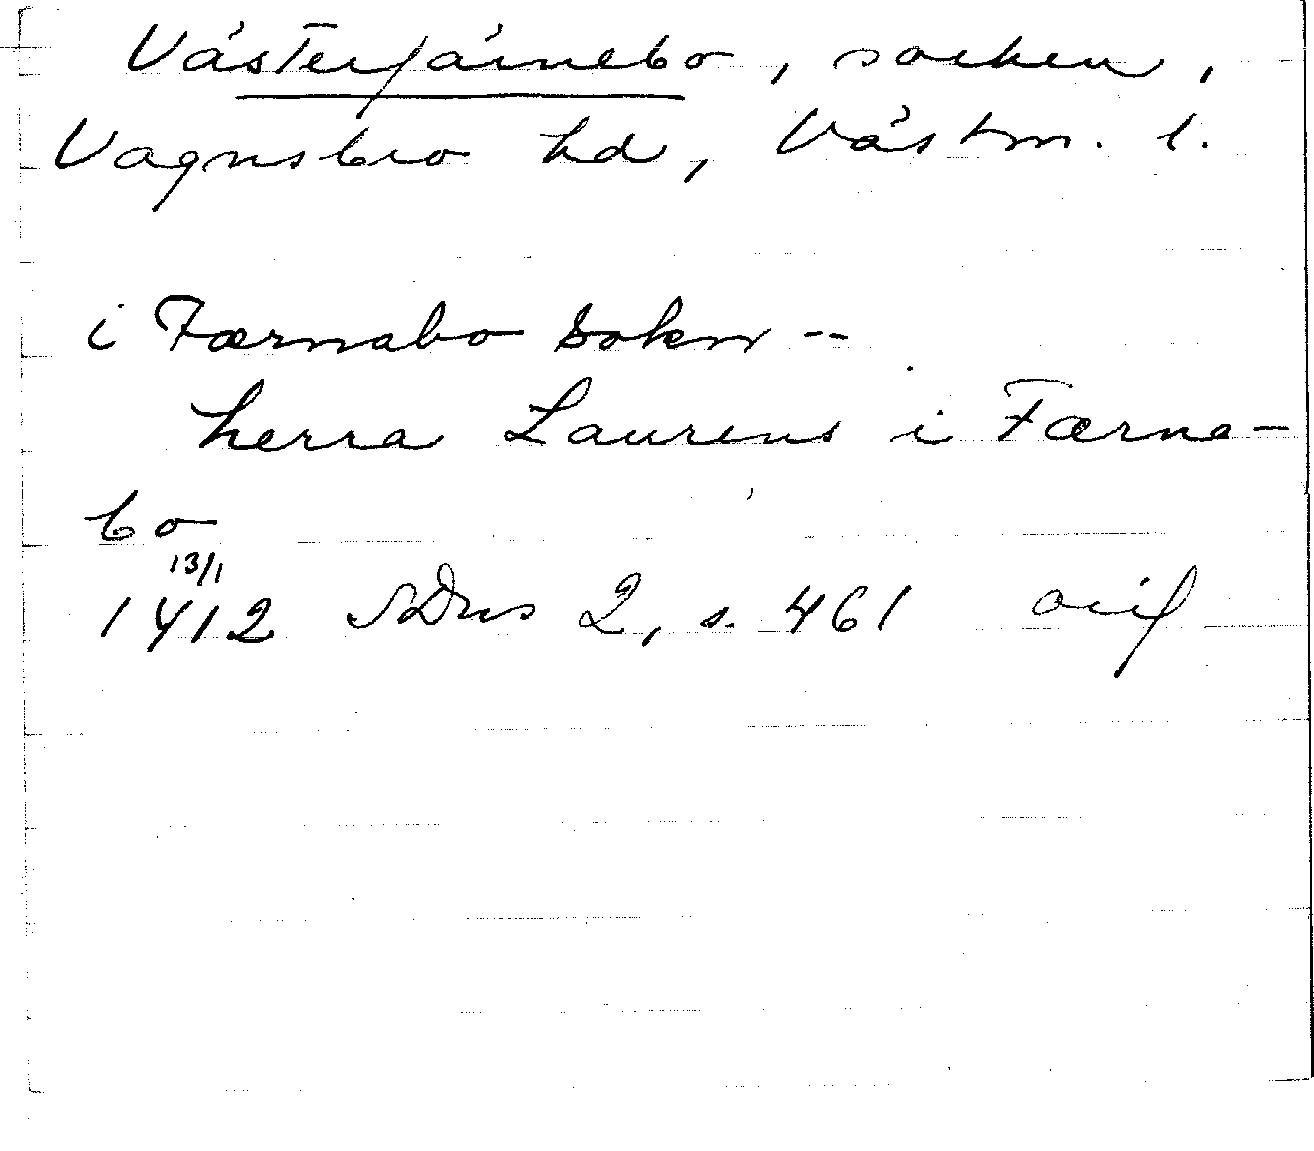 Västerfärnebo, socken,
Vagnsbro hd, Västm. l.
i Færnabo sokn --
herra Laurens i Færne-
bo
13/1
1412 SDns 2, s. 461 orig